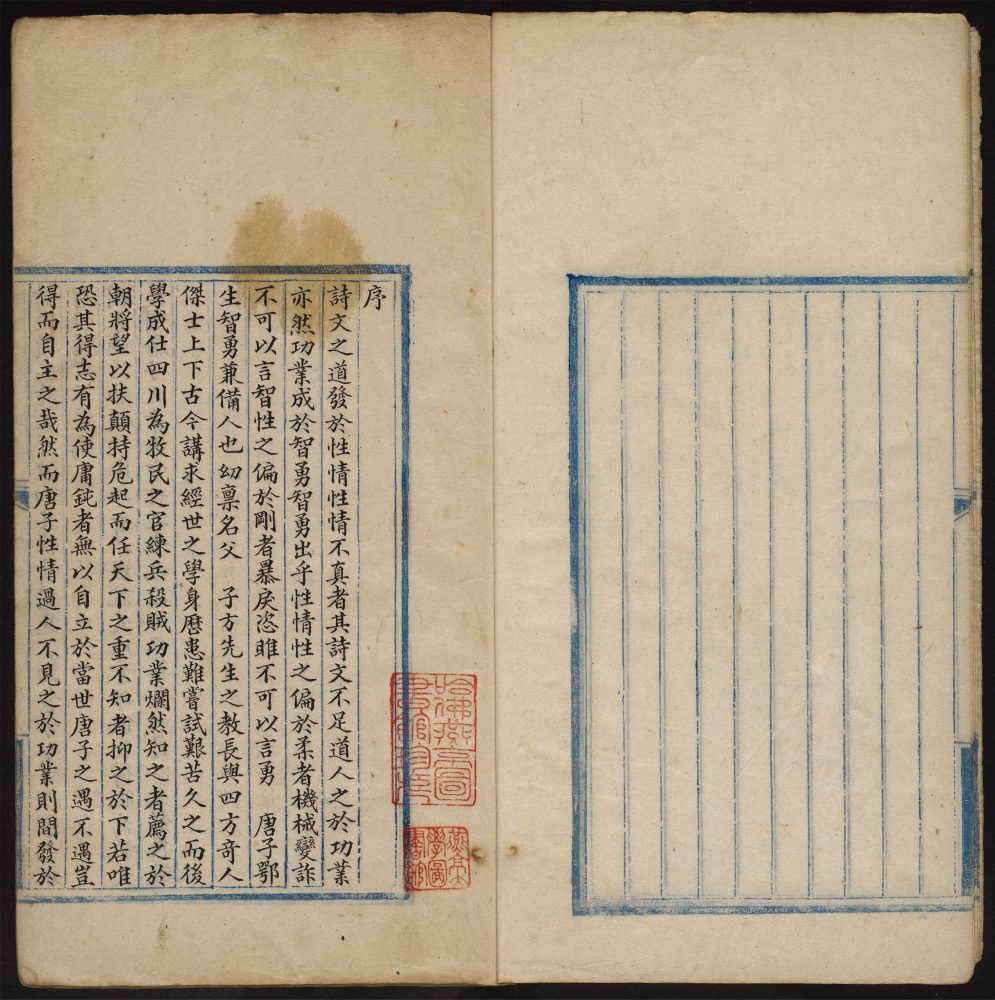 序
詩文之道發於性情性情不真者其詩文不足道人之於功業
亦然功業成於智勇智勇出乎性情性之偏於柔者機械變詐
不可以言智性之偏於剛者暴戾恣睢不可以言勇　唐子鄂
生智勇兼備人也幼禀名父　子方先生之教長與四方奇人
傑士上下古今講求經世之學身歷患難嘗試艱苦久之而後
學成仕四川為牧民之官練兵殺賊功業爛然知之者薦之於
朝將望以扶顛持危起而任天下之重不知者抑之於下若唯
恐其得志有為使庸鈍者無以自立於當世唐子之遇不遇豈
得而自主之哉然而唐子性情過人不見之於功業則間發於
哈佛燕京圖書館珍藏印
燕京學圖書館